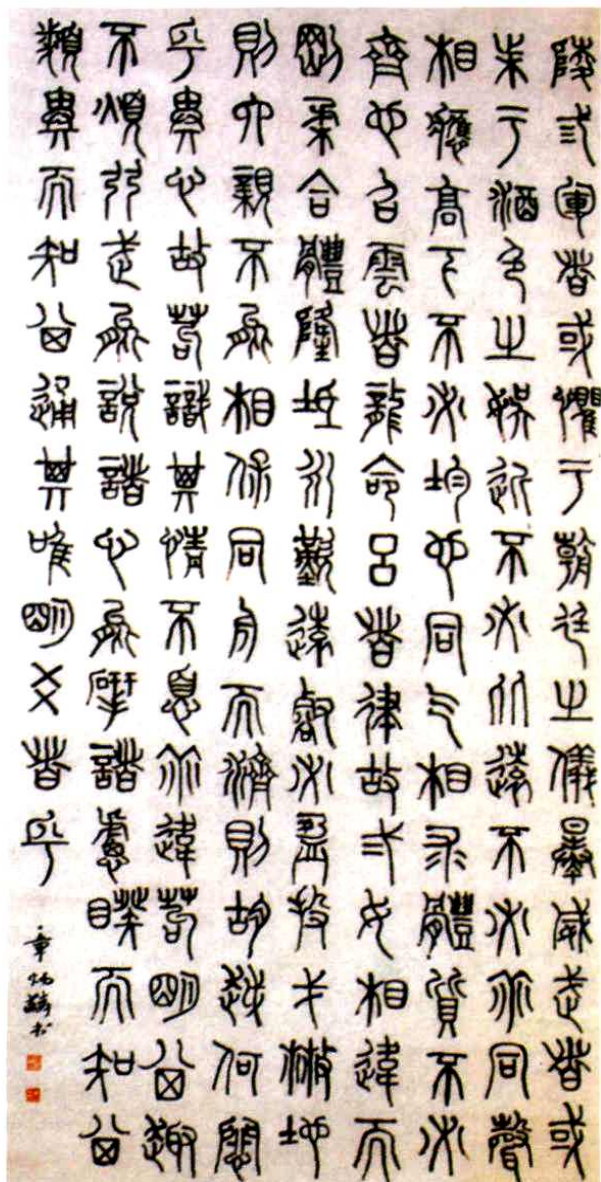 陵弎軍者或懼于朝廷之儀暴威武者或
困于酒色之娛近不必比遠不必乖同聲
相應高下不必均也同气相求體質不必
齊也召雲者龍命呂者律故弍女相違而
剛柔合體隆坻永歎遠壑必盈投戈散地
則六親不能相保同舟而濟則胡越何患
乎異心故苟識其情不憂乖違苟明其趣
不煩弱武能說諸心能揅諸慮睽而知其
類異而知其通其唯明爻者乎
章炳麟書